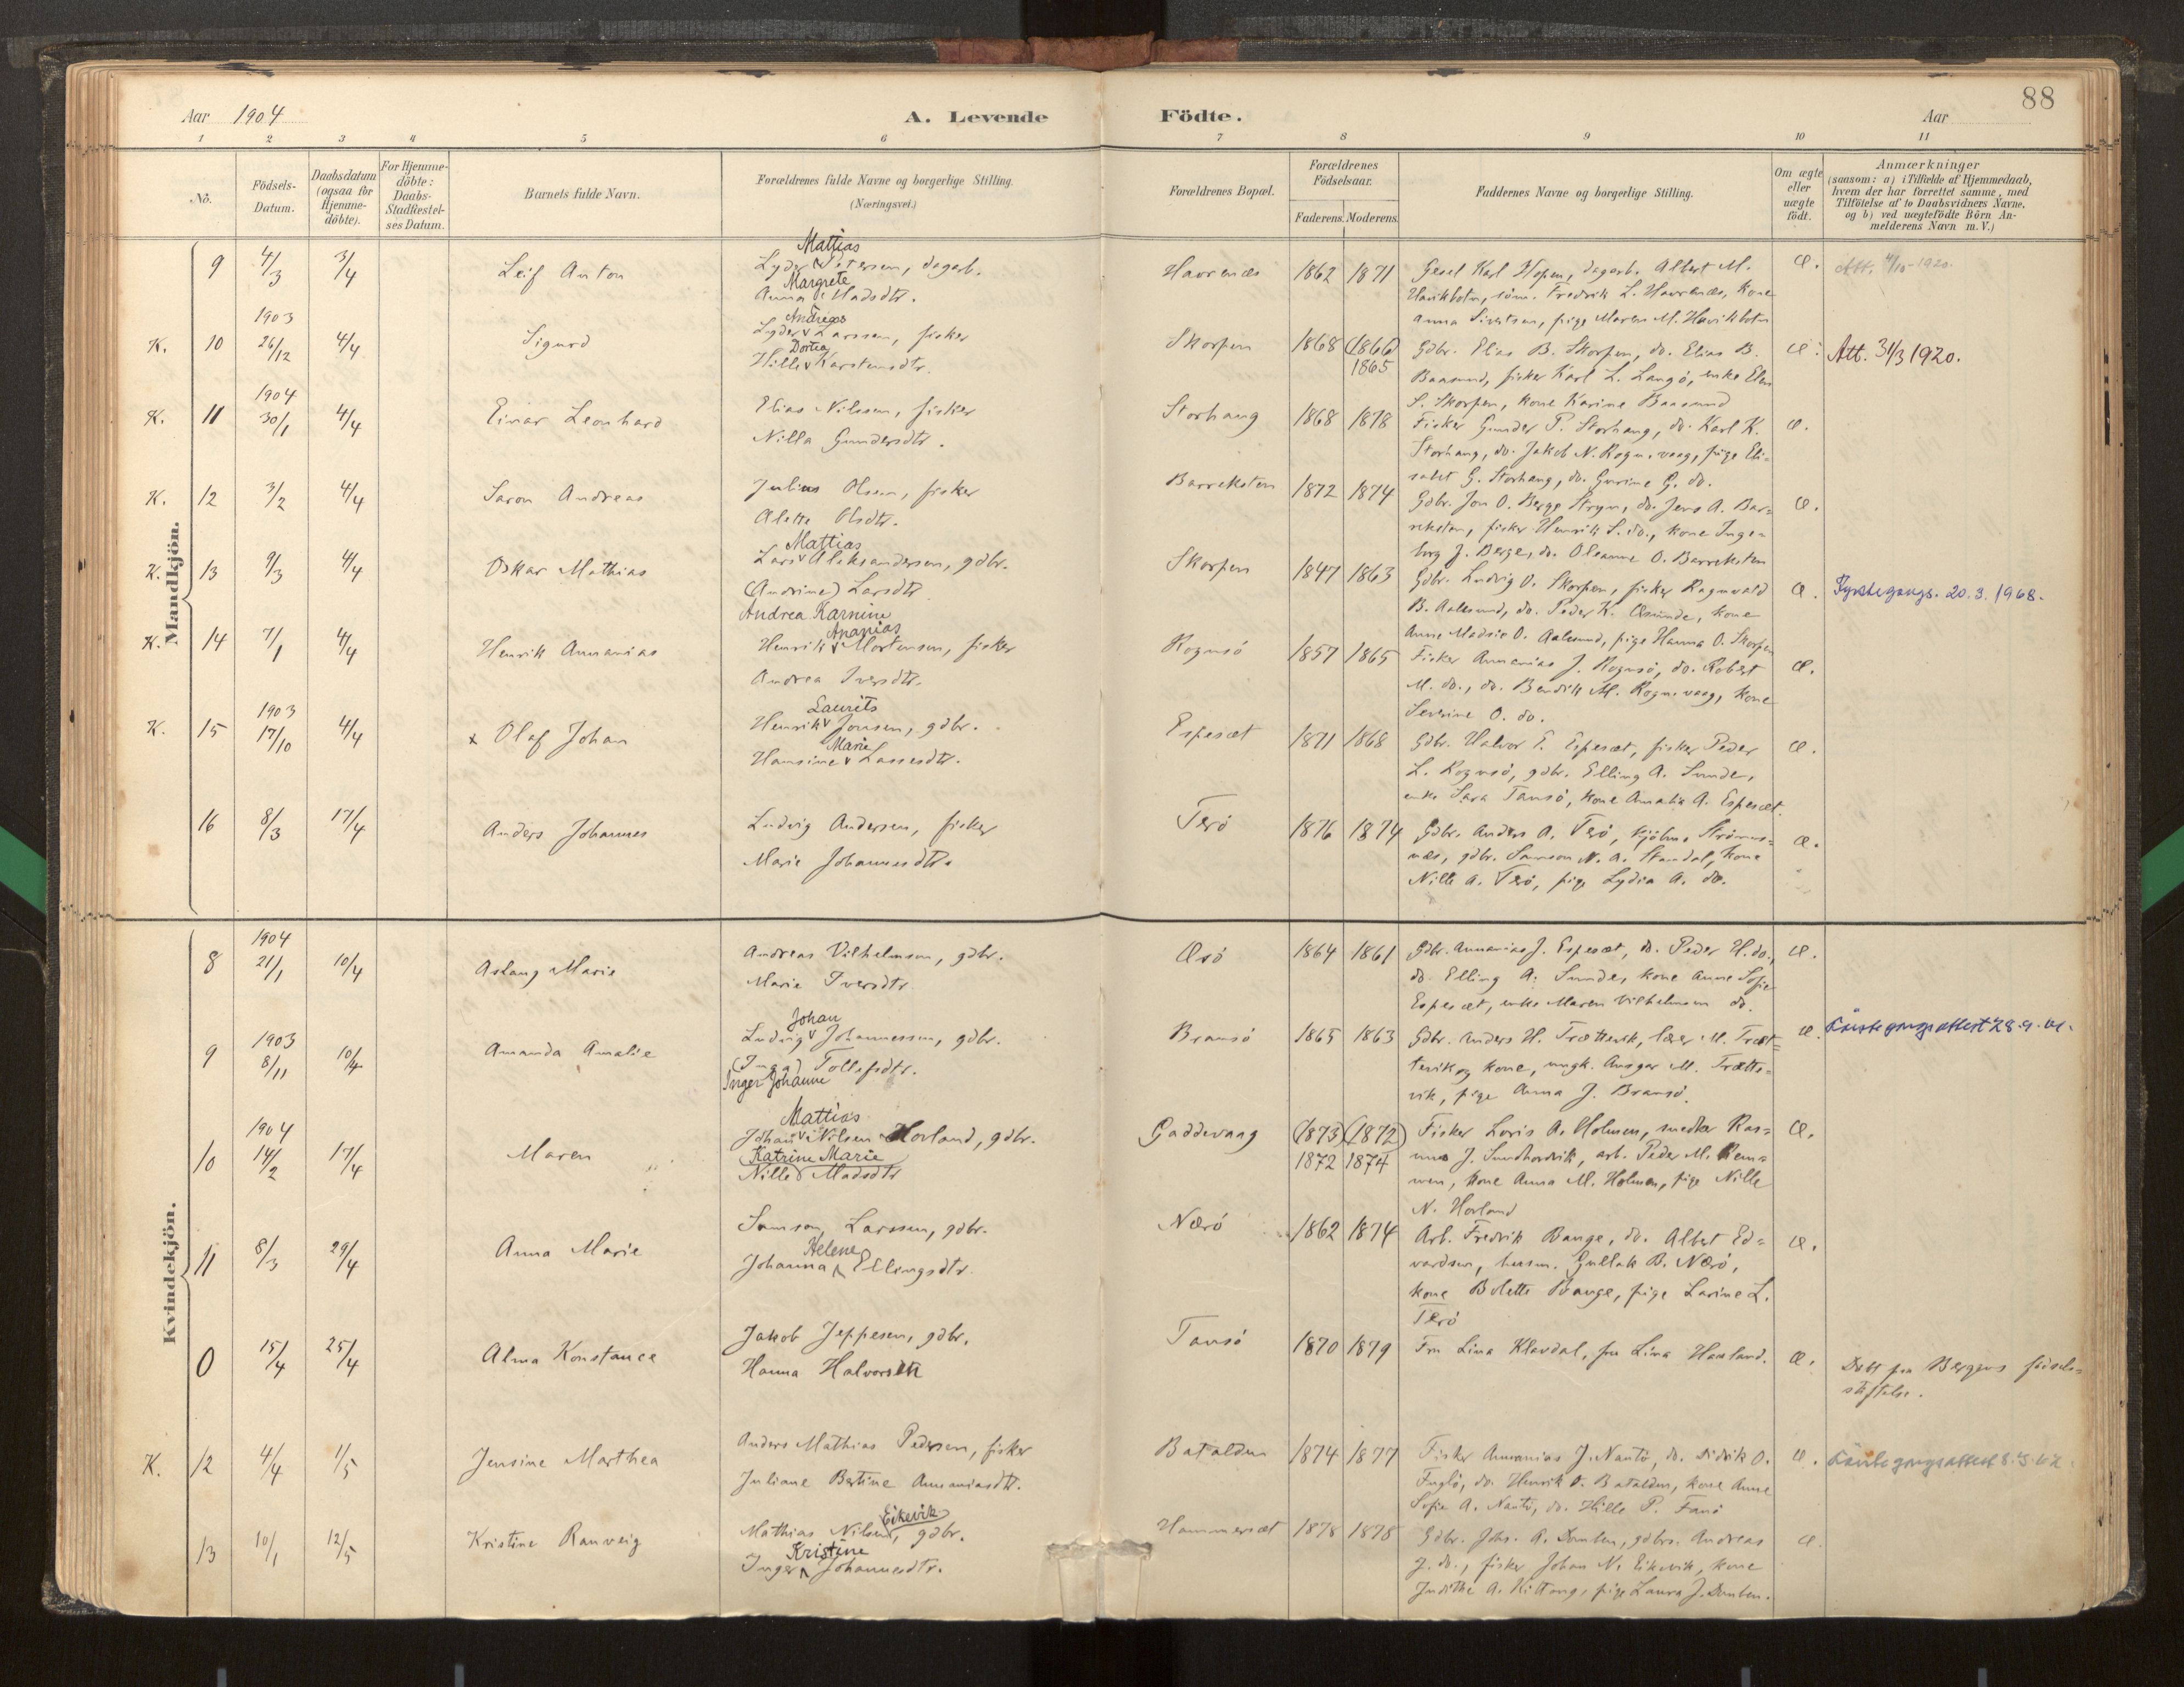 88
Aar 1904
A. Levende Födte.
Aar
1 2 3 4 5 6 7 8 9 10 11
No.
Födsels-Datum.
Daabsdatum (ogsaa for Hjemme-döbte).
For Hjemme-döbte: Daabs-Stadfæstel-ses Datum.
Barnets fulde Navn.
Forældrenes fulde Navne og borgerlige Stilling.
(Næringsvei.)
Forældrenes Bopæl.
Forældrenes Födselsaar.
Faderens. Moderens.
Faddernes Navne og borgerlige Stilling.
Om ægte eller uægte födt.
Anmærkninger
(saasom: a) i Tilfælde af Hjemmedaab,
hvem der har forrettet samme, med
Tilföielse af to Daabsvidners Navne,
og b) ved uægtefödte Börn An-
melderens Navn m. V.)
Mandkjön.
9 4/3 3/4 Leif Anton
Mattias
Lyder Petersen, dagarb.
Margrete
Anna Madsdtr.
Havrenæs 1862 1871
Gesel Karl Hopen, dagarb. Albert M.
Havikbotn, söm. Fredrik L. Havrenæs, kone
Anna Sivertsen, pige Maren M. Havikbotn
Æ. Att. 4/10-1920.
K. 10 1903 26/12 4/4 Sigurd
Andreas
Lyder Larssen, fisker
Dortea
Hille Karstensdtr.
Skorpen 1868 (1866) 1865
Gdbr. Elias B. Skorpen, do. Elias B.
Baasund, fisker Karl L. Langö, enke Elen
S. Skorpen, kone Karine Baasund
Æ. Att. 31/3 1920.
K. 11 1904 30/1 4/4 Einar Leonhard
Elias Nilssen, fisker
Nilla Gundersdtr.
Storhaug 1868 1878
Fisker Gunder P. Storhaug, do. Karl K.
Storhaug, do. Jakob N. Rognevaag, pige Eli=
sabet G. Storhaug, do. Gurine G. do.
Æ.
K. 12 3/2 4/4 Saron Andreas
Julius Olsen, fisker
Alette Olsdtr.
Barreksten 1872 1874
Gdbr. Jon O. Berge Stryn, do. Jens A. Bar=
reksten, fisker Henrik S. do., kone Inge=
borg J. Berge, do. Oleanne O. Barreksten
Æ.
K. 13 9/3 4/4 Oskar Mathias
Mattias
Lars Aleksandersen, gdbr.
(Andrine) Larsdtr
Andrea Karnine
Skorpen 1847 1863
Gdbr. Ludvig O. Skorpen, fisker Ragnvald
B. Aalesund, do. Peder K. Oksunde, kone
Anne Madsie O. Aalesund, pige Hanna O. Skorpen
Æ. Fyrstegangs. 20.3.1968.
K. 14 7/1 4/4 Henrik Annanias
Ananias
Henrik Mortensen, fisker
Andrea Iversdtr.
Rognsö 1857 1865
Fisker Annanias J. Rognsö, do. Robert
M. do., do. Bendik M. Rognevaag, kone
Severine O. do.
Æ.
K. 15 1903 17/10 4/4 x Olaf Johan
Laurits
Henrik Jonsen, gdbr.
Marie
Hansine Lassesdtr.
Espesæt 1871 1868
Gdbr. Halvor E. Espesæt, fisker Peder
L. Rognsö, gdbr. Elling A. Sunde,
enke Sara Tansö, kone Amalie A. Espesæt.
Æ.
16 8/3 17/4 Anders Johannes
Ludvig Andersen, fisker
Marie Johannesdtr.
Terö 1876 1874
Gdbr. Anders A. Terö, kjöbm. Strömms=
næs, gdbr. Samson N. A. Standal, kone
Nille A. Terö, pige Lydia A. do.
Æ.
Kvindekjön.
8 1904 21/1 10/4 Aslaug Marie
Andreas Vilhelmsen, gdbr.
Marie Iversdtr
Ærö 1864 1861
Gdbr. Annanias J. Espesæt, do. Peder H. do.,
do. Elling A. Sunde, kone Anne Sofie
Espesæt, enke Maren Vilhelmsen do.
Æ.
9 1903 8/11 10/4 Amanda Amalie
Johan
Ludvig Johannessen, gdbr.
(Inga) Tollefsdtr.
Inger Johanne
Bransö 1865 1863
Gdbr. Anders H. Trættevik, lærer M. Træt=
tevik og kone, ungk. Ansgar M. Trætte=
vik, pige Anna J. Bransö.
Æ.
10 1904 14/2 17/4 Maren
Mattias
Johan Nilsen Hovland, gdbr.
Katrine Marie
Nille Madsdtr
Gaddevaag (1873) (1872)
1872 1874
Fisker Loris A. Holmen, snedker Ras=
mus J. Sundhordvik, arb. Peder M. Rem=
men, kone Anna M. Holmen, pige Nille
N. Hovland
Æ.
11 8/3 29/4 Anna Marie
Samson Larssen, gdbr.
Helene
Johanna Ellingsdtr.
Nærö 1862 1874
Arb. Fredrik Bauge, do. Albert Ed=
vardsen, husm. Gullak B. Nærö,
kone Bolette Bauge, pige Larine L.
Terö
Æ.
0 15/4 25/4 Alma Konstance
Jakob Jeppesen, gdbr.
Hanna Halvorsdtr
Tansö 1870 1879
Fru Lina Klavdal, fru Lina Haaland.
Æ. Döbt paa Bergens födsels=
stiftelse.
K. 12 4/4 1/5 Jensine Marthea
Anders Mathias Pedersen, fisker
Juliane Bertine Annaniasdtr.
Batalden 1874 1877
Fisker Annanias J. Nautö, do. Didrik O.
Fuglö, do. Henrik O. Batalden, kone Anne
Sofie A. Nautö, do. Hille P. Fanö
Æ.
13 10/1 12/5 Kristine Ranveig
Eikevik
Mathias Nilsen, gdbr.
Kristine
Inger Johannesdtr.
Hammersæt 1878 1878
Gdbr. Johs. A. Domben, gdbrs. Andreas
J. do., fisker Johan N. Eikevik, kone
Judithe A. Kittang, pige Laura J. Domben.
Æ.